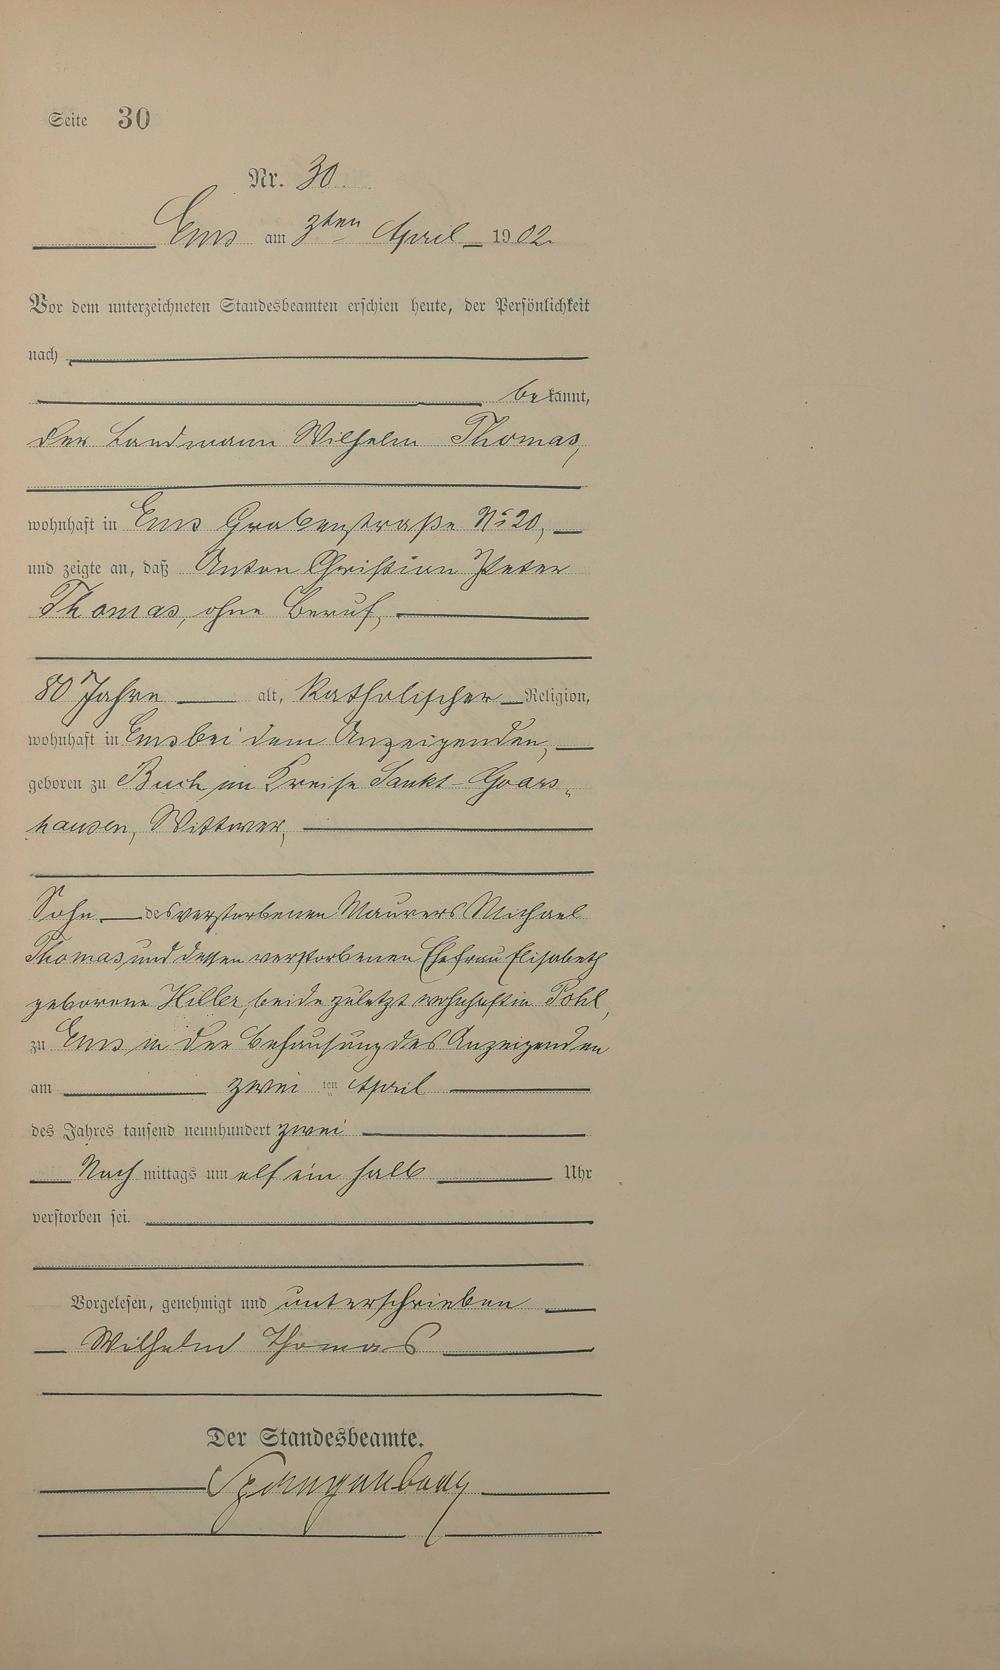 Seite 30
Nr. 30.
Ems am 3ten April 1902.
Vor dem unterzeichneten Standesbeamten erschien heute, der Persönlichkeit
nach
bekannt,
der Landmann Wilhelm Thomas,
wohnhaft in Ems Grabenstraße No 20,
und zeigte an, daß Anton Christian Peter
Thomas, ohne Beruf,
80 Jahre alt, katholischer Religion,
wohnhaft in Ems bei dem Anzeigenden,
geboren zu Buch im Kreise Sankt-Goars-
hausen, Wittwer,
Sohn des verstorbenen Maurers Michael
Thomas und dessen verstorbenen Ehefrau Elisabeth
geborene Hiller, beide zuletzt wohnhaft in Pohl,
zu Ems in der Behausung des Anzeigenden
am zwei ten April
des Jahres tausend neunhundert zwei
Nach mittags um elf ein halb Uhr
verstorben sei.
Vorgelesen, genehmigt und unterschrieben
Wilhelm Thomas
Der Standesbeamte.